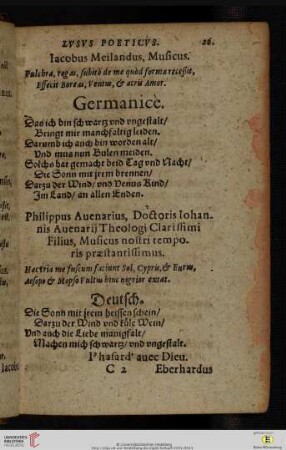 LVSVS POETICVS. 26.
Iacobus Meilandus, Musicus.
Pulchra, rogas, subitò de me quòd forma recessit,
Effecit Boreas, Ventus, & acris Amor.
Germanice.
Das ich bin schwartz vnd vngestalt/
Bringt mir manchfaltig leiden.
Darumb ich auch bin worden alt/
Vnd mus nun Bulen meiden.
Solchs hat gemacht beid Tag vnd Nacht/
Die Sonn mit jrem brennen/
Darzu der Wind/ vnd Venus Kind/
Im Land/ an allen Enden.
Philippus Avenarius, Doctoris Iohan-
nis Avenarij Theologi Clarissimi
Filius, Musicus nostri tempo-
ris præstantissimus.
me fuscum faciunt Sol, Cypris, & Eurus,
Aesopo & Mopso vultus hinc nigrior extat.
Deutsch.
Die Sonn mit jrem heissen schein/
Darzu der Wind vnd küle Wein/
Vnd auch die Liebe manigfalt/
Machen mich schwartz/ vnd vngestalt.
Phasard' auec Dieu.
C 2 Eberhardus
Iacobs
© Universitätsbibliothek Heidelberg
gefördert durch